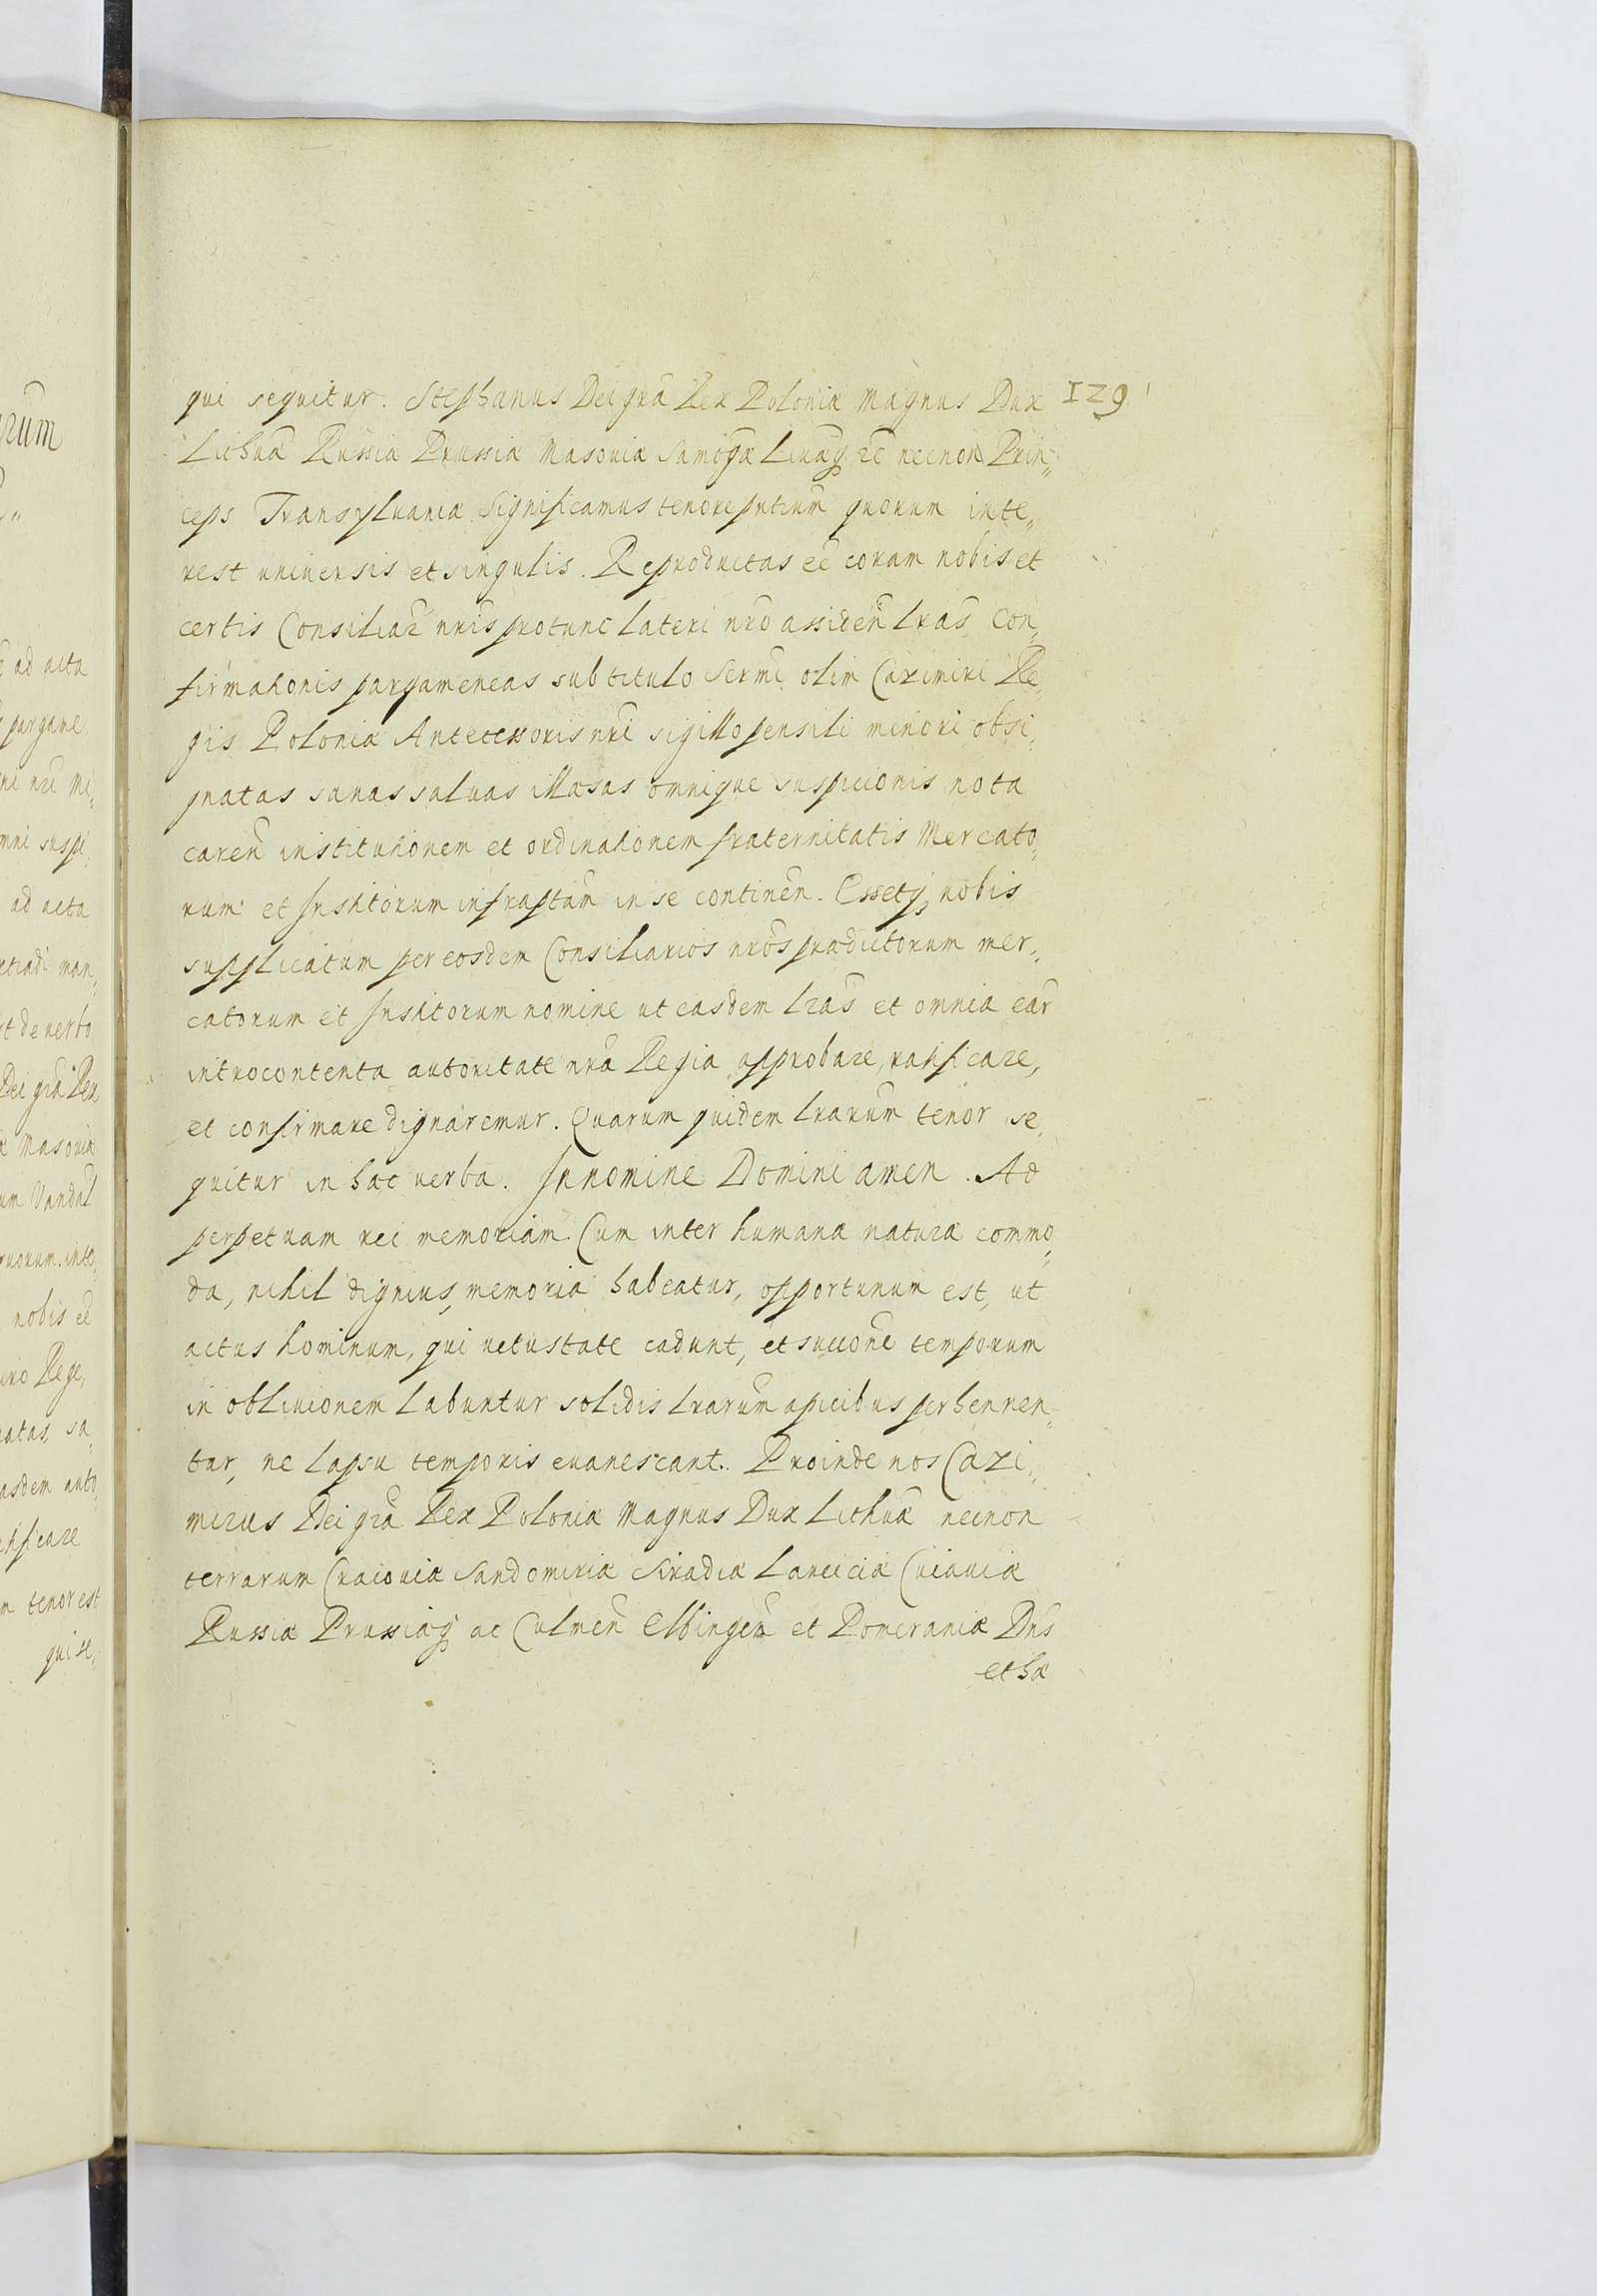 129
qui sequitur. Stephanus Dei gra Rex Poloniæ Magnus Dux
Lithuã Russiæ Prussiæ Masoviæ Samogæ Livãq ec necnon Prin„
ceps Transylvaniæ Significamus tenore pntium quorum inte„
rest universis et singulis. Reproductas eẽ coram nobis et
certis Consiliar̃ nris protunc lateri nrõ assideñ lrãs Con„
firmationis pargameneas sub titulo Sermi olim Cazimiri Re„
gis Poloniæ Antecessoris nri sigillo pensili minori obsi„
gnatas sanas salvas illæsas omnique suspicionis nota
careñ institutionem et ordinationem fraternitatis Mercato„
rum et Institorum infraptam in se contineñ. Essetq nobis
supplicatum per eosdem Consiliarios nros prædictorum mer„
catorum et Institorum nomine ut easdem lrãs et omnia ear
introcontenta autoritate nrã Regia approbare, ratificare,
et confirmare dignaremur. Quarum quidem lrarum tenor se„
quitur in hæc verba. In nomine Domini amen. Ad
perpetuam rei memoriam. Cum inter humanæ naturæ commo„
da, nihil dignius, memoria habeatur, opportunum est, ut
actus hominum, qui vetustate cadunt, et succone temporum
in oblivionem labuntur solidis lrarum apicibus perhennen„
tur, ne lapsu temporis evanescant. Proinde nos Cazi„
mirus Dei gra Rex Poloniæ Magnus Dux Lithuæ necnon
terrarum Cracoviæ Sandomiriæ Siradiæ Lanciciæ Cuiaviæ
Russiæ Prussiæq ac Culmeñ Elbingeñ et Pomeraniæ Dns
et hæ
ad acta
pargame
omni suspi„
ad acta
man„
de verbo
Dei gra Rex
Masoviæ
Vandal
quorum inte„
nobis eẽ
Rege,
sa„
asdem auto„
tenor est
qui se„